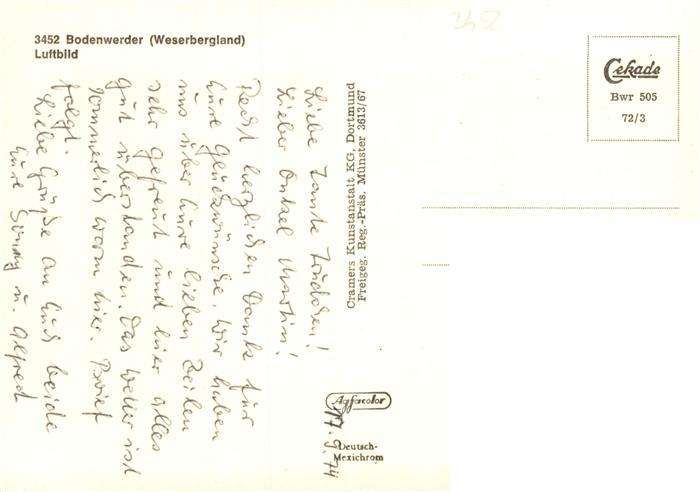 3452 Bodenwerder (Weserbergland)
Luftbild
Liebe Tante
Lieber Onkel Martin!
Recht herzlichen Dank für
Eure Glückwünsche. Wir haben
uns über Eure lieben Zeilen
sehr gefreut und hier alles
gut überstanden. Das Wetter ist
sommerlich warm hier. Brief
folgt.
Liebe Grüße an Euch beide
Eure u. Alfred
17.9.74
Cramers Kunstanstalt KG, Dortmund
Freigeg. Reg.-Präs. Münster 3613/67
Cekade
Bwr 505
72/3
Agfacolor
Deutsch-
Mexichrom